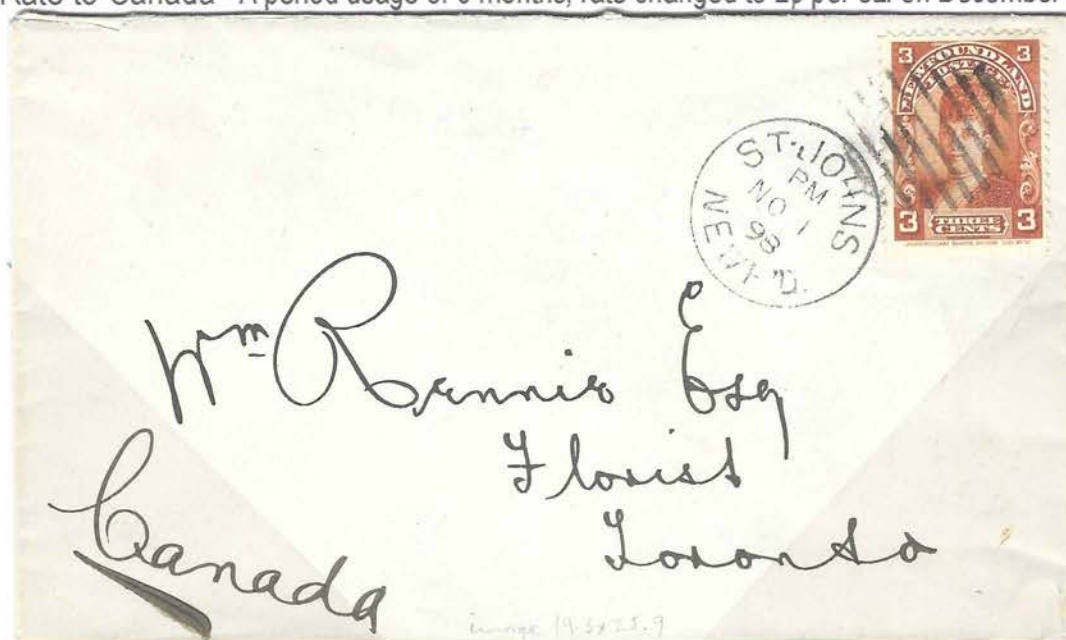 Rate to Canada - A period usage of 6 months, rate changed to 2¢ per oz. on December
3 NEWFOUNDLAND 3
POSTAGE
3 THREE CENTS 3
ST. JOHNS
PM
NO 1
98
NEWF'D.
Wm Rennie Esq
Florist
Toronto
Canada
image 19.5x25.9